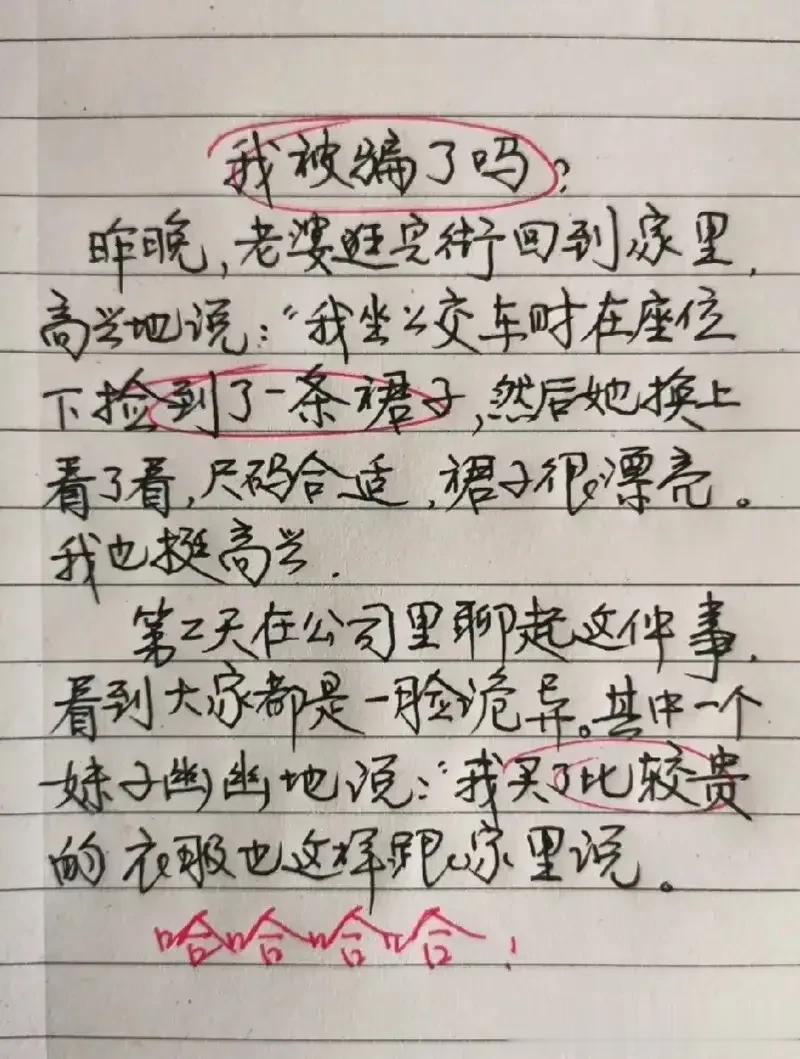 我被骗了吗?
昨晚,老婆逛完街回到家里,
高兴地说:“我坐公交车时在座位
下捡到了一条裙子,然后她换上
看了看,尺码合适,裙子很漂亮。
我也挺高兴.
第二天在公司里聊起这件事,
看到大家都是一脸诡异。其中一个
妹子幽幽地说:“我买了比较贵
的衣服也这样跟家里说。
哈哈哈哈!